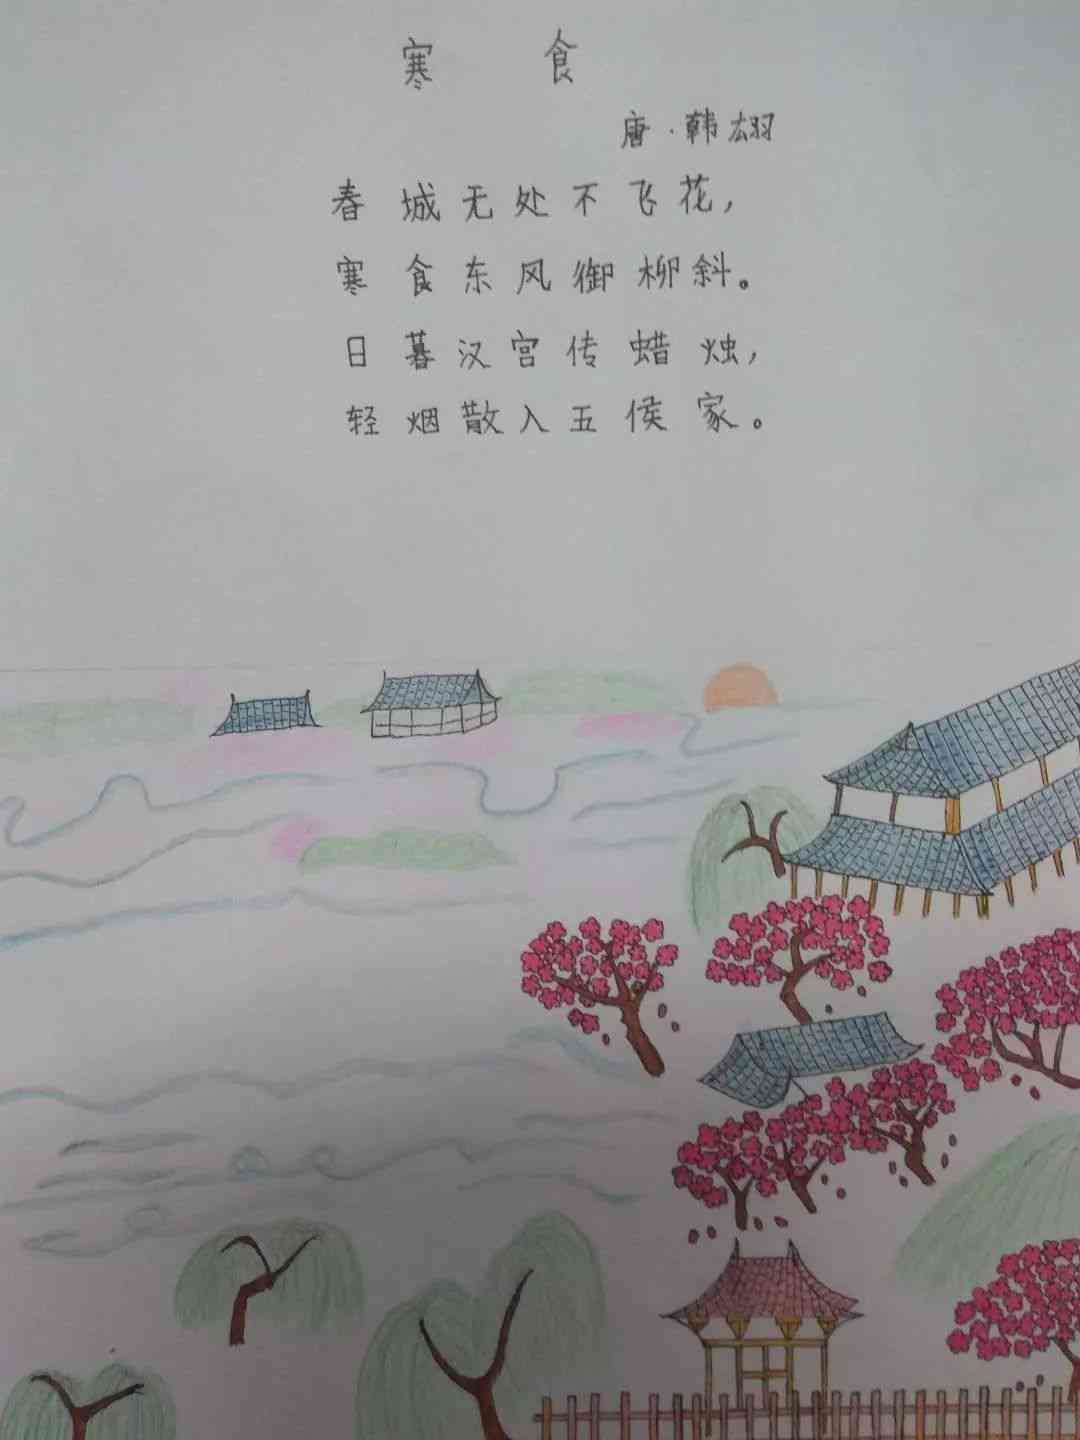 寒食
唐·韩翃
春城无处不飞花，
寒食东风御柳斜。
日暮汉宫传蜡烛，
轻烟散入五侯家。